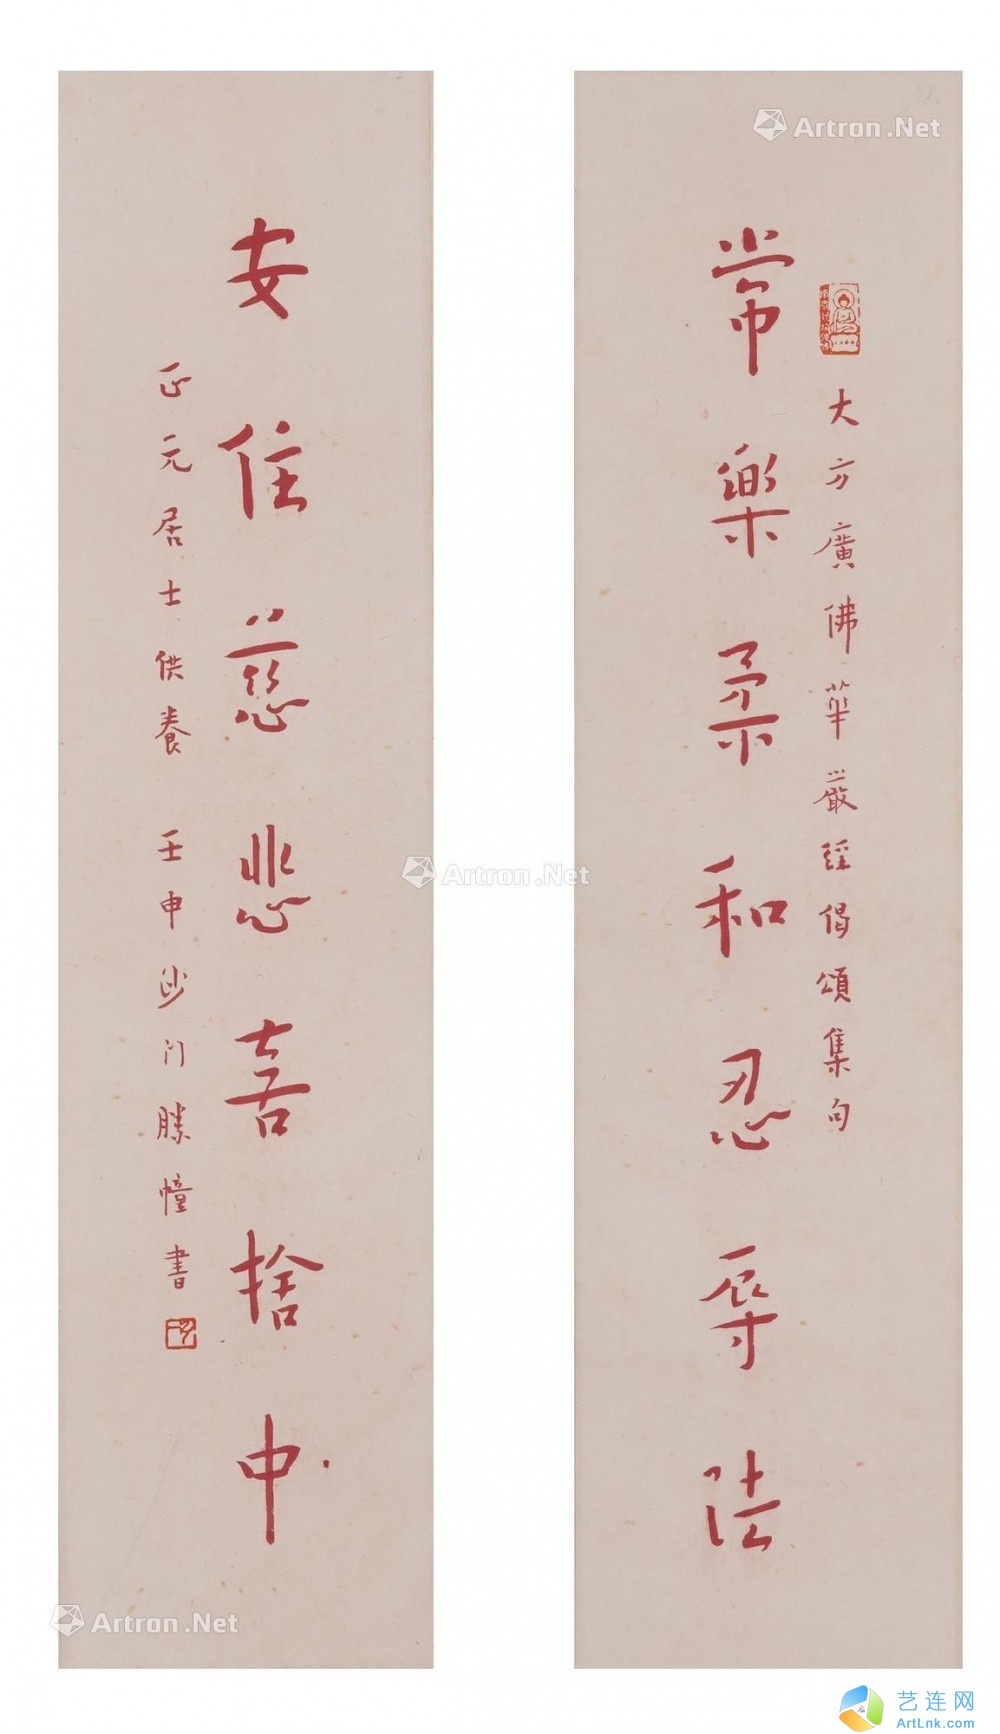 大方廣佛華嚴經偈頌集句
常樂柔和忍辱法
安住慈悲喜捨中
正元居士供養 壬申沙门勝幢書
Artron.Net
Artron.Net
Artron.Net
艺连网
ArtLnk.com